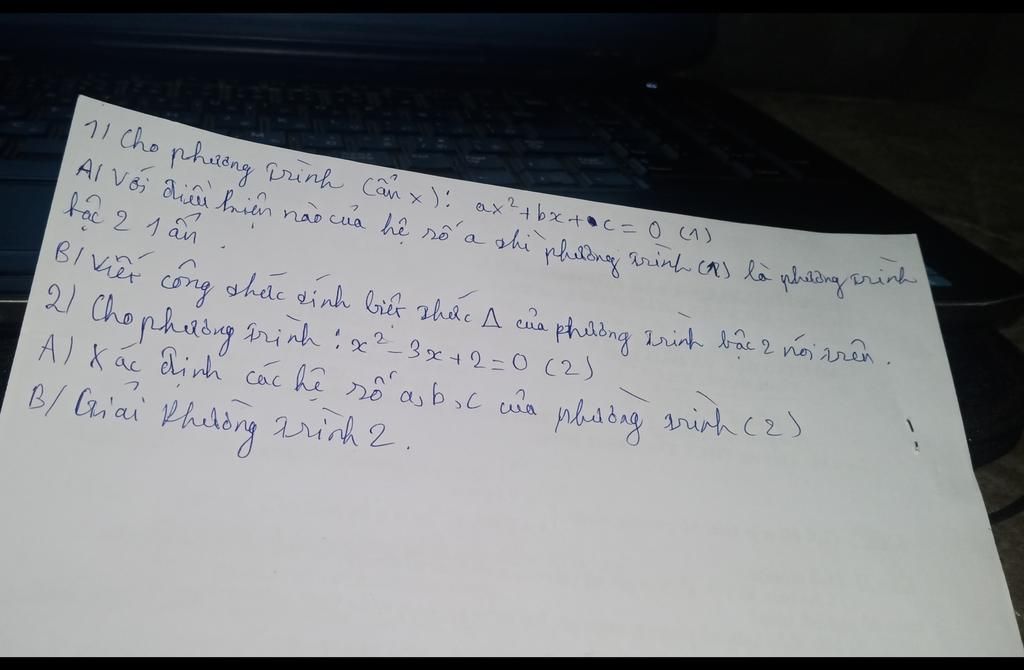 1) Cho phương trình (ẩn x): ax² + bx + c = 0 (1)
A) Với điều kiện nào của hệ số a thì phương trình (1) là phương trình
bậc 2 1 ẩn.
B) Viết công thức tính biệt thức Δ của phương trình bậc 2 nói trên.
2) Cho phương trình: x² - 3x + 2 = 0 (2)
A) Xác định các hệ số a, b, c của phường trình (2)
B) Giải Phường trình 2.